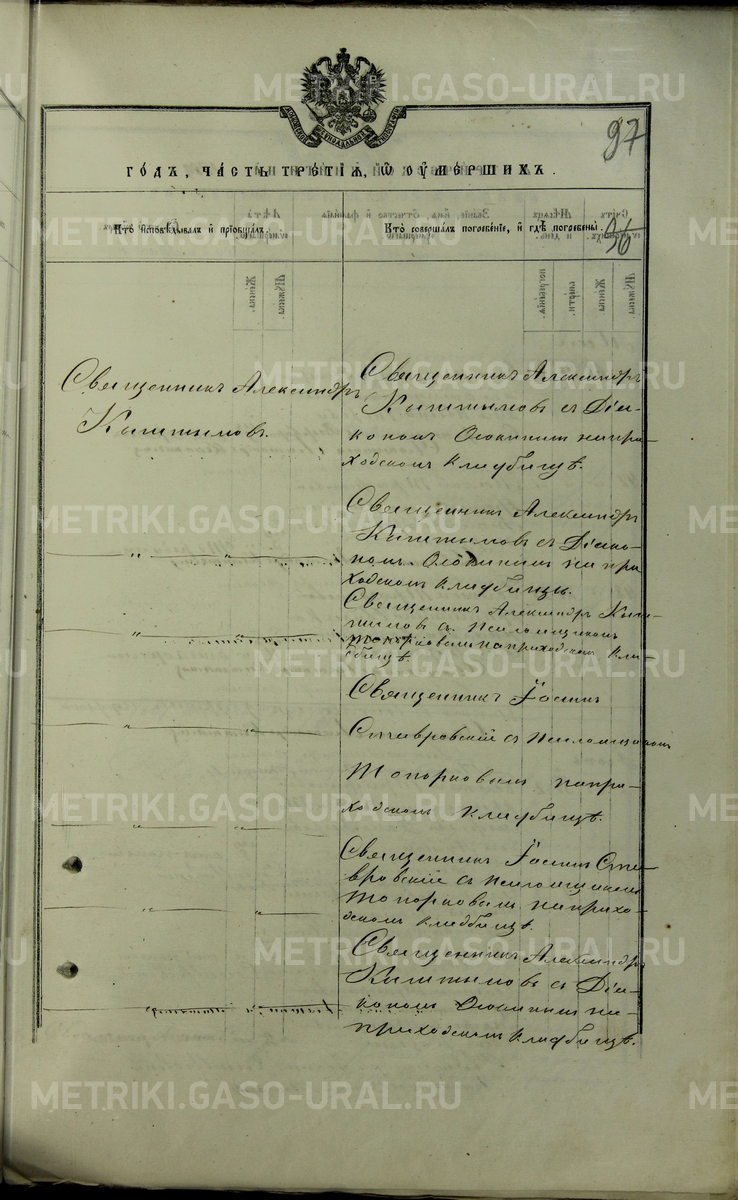 97
ГОДЪ, ЧАСТЬ ТРЕТІѦ, Ѡ ОУМЕРШИХЪ.
Кто исповѣдывалъ и пріобщалъ.
Кто совершалъ погребеніе, и гдѣ погребены.
36
Священникъ Александръ
Кыштымовъ.
Священникъ Александръ
Кыштымовъ съ Діа-
кономъ на при-
ходскомъ кладбищѣ.
Священникъ Александръ
Кыштымовъ съ Діако-
номъ на при
ходскомъ кладбищѣ.
Священникъ Александръ Кыш-
тымовъ съ Псаломщикомъ
Топорковымъ на приходскомъ кла-
дбищѣ.
Священникъ Іоаннъ
Ставровскій съ Псаломщикомъ
Топорковымъ на при-
ходскомъ кладбищѣ.
Священникъ Іоаннъ Ста-
вровскій съ Псаломщикомъ
Топорковымъ на прихо-
дскомъ кладбищѣ.
Священникъ Александръ
Кыштымовъ съ Діа-
кономъ на
приходскомъ кладбищѣ.
METRIKI.GASO-URAL.RU